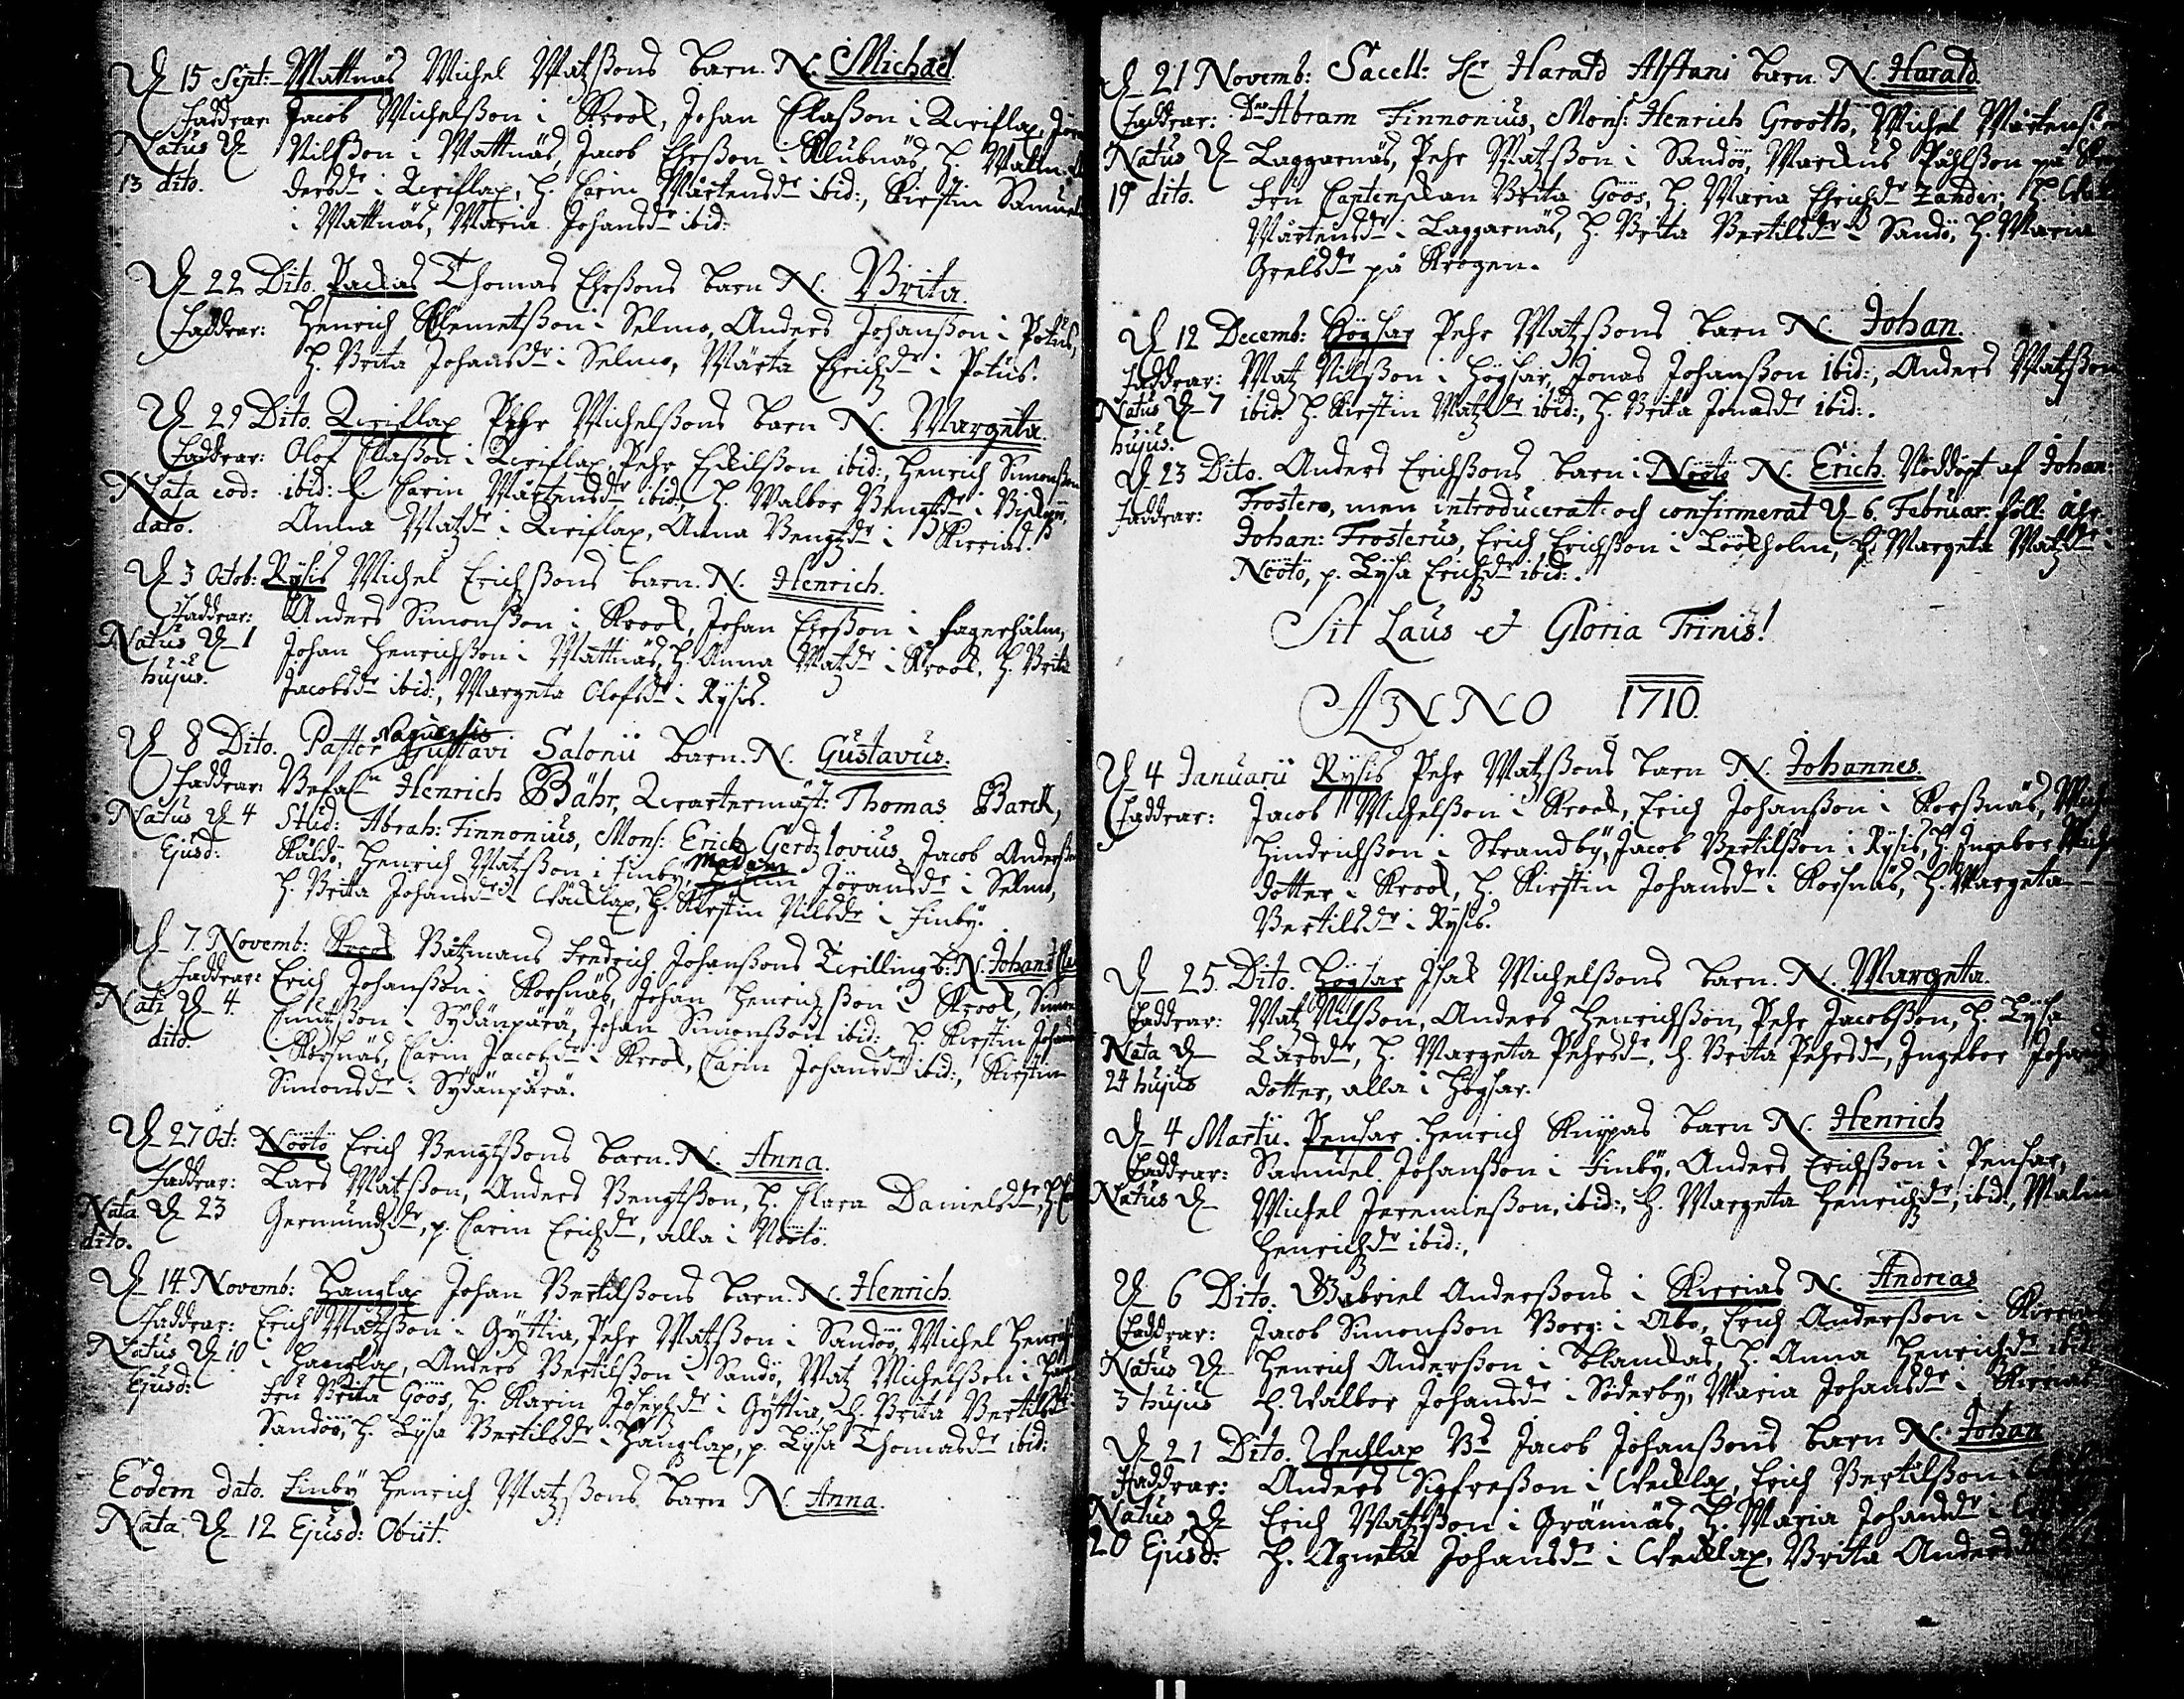 D. 15 Sept: Mattnäs Michel Matzßons barn. N. Michäel
Faddrar: Jacob Michelßon i Krook, Johan Claßon i Qvriflax,
Natus D. Nilßon i Mattnäs, Jacob Ehrßon i Klubnäs, H. Malin
13 dito. dersdr i Qvriflax, H. Carin Mårtensdr ibid:, Kirstin Samuels
i Mattnäs, Maria Johansdr ibid:
D. 22 Dito. Packas Thomas Ehrßons barn N. Brita.
Faddrar: Henrich Klemetßon i Selmo, Anders Johanßon i Potus,
H. Brita Johansdr i Selmo, Märta Erichdr i Potus.
D. 29 Dito. Qvriflax Pehr Michelßons barn N. Margeta.
Faddrar: Olof Claßon i Qvriflax, Pehr Eskilßon ibid:, Henrich Simonßon
Nata eod: ibid: H. Carin Mårtensdr ibid:, H. Walbor Bengtdr i
dato. Anna Matzdr i Qvriflax, Anna Bengtzdr i Kirrias.
D. 3 Octob: Rysis Michel Erichßons barn. N. Henrich.
Faddrar: Anders Simonßon i Krook, Johan Ehrßon i Fagerholm,
Natus D. 1 Johan Henrichßon i Mattnäs, H. Anna Matzdr i Krook, H. Brita
hujus. Jacobsdr ibid:, Margeta Olofsdr i Rysis.
Naguensis
D. 8 Dito. Pastor Gustavi Salonii barn. N. Gustavus.
Faddrar: Befaln Henrich Bähr, Qvartermäst: Thomas Barck,
Natus D. 4 Stud: Abrah: Finnonius, Mons: Erich Gerdzlovius, Jacob Anderßon
Ejusd: Käldö, Henrich Matzßon i Finby, Madam Jöransdr i Selmo,
H. Brita Johansdr i Väcklax, H. Kirstin Nilsdr i Finby.
D. 7. Novemb: Krook Båtzmans Fredrich Johanßons Tvilling b: N. Johan
Faddrar: Erich Johanßon i Korsnäs, Johan Henrichßon i Krook, Simon
Nati D. 4. Cnutßon i Sydänpärä, Johan Simonßon ibid: H. Kirstin Johans
dito. i Korsnäs, Carin Jacobdr i Krook, Carin Johansdr ibid:, Kirstin
Simonsdr i Sydänpärä.
D. 27 Oct: Nöötö Erich Bengtßons barn. N. Anna.
Faddrar: Lars Matzßon, Anders Bengtßon, H. Clara Danielsdr,
Nata D. 23 Germundzdr, p. Carin Erichdr, alla i Nöötö.
dito.
D. 14. Novemb: Hanglax Johan Bertilßons barn. N. Henrich.
Faddrar: Erich Matzßon i Gyttia, Pehr Matzßon i Sandöö, Michel Henrich
Natus D. 10 i Hanglax, Anders Bertilßon i Sandö, Matz Michelßon i
Ejusd: Fru Brita Göös, H. Karin Josephdr i Gyttia, H. Brita Bertilsdr
Sandöö, H. Lysa Bertilsdr i Hanglax, p. Lysa Thomasdr ibid:
Eodem dato. Finby Henrich Matzßons barn N. Anna.
Nata D. 12 Ejusd: Obiit.
D. 21 Novemb: Sacell: Hr Harald Alstani barn. N. Harald
Faddrar: Dns Abram Finnonius, Mons: Henrich Grooth, Michel Mårtens
Natus D. Laggarnäs, Pehr Matzßon i Sandöö, Marcus Påhlßon på
19 dito. Fru Captenskan Brita Göös, H. Maria Erichdr Zander, H.
Mårtensdr i Laggarnäs, H. Brita Bertilsdr i Sandö, H. Maria
Grelsdr på Krogen.
D. 12 Decemb: Högsar Pehr Matzßons barn N. Johan.
Faddrar: Matz Nilßon i Högsar, Jonas Johanßon ibid:, Anders Matzßon
Natus D. 7 ibid: H. Kirstin Matzdr ibid:, H. Brita Jonasdr ibid:.
hujus.
D. 23 Dito. Anders Erichßons barn i Nöötö N. Erich. Nöddöpt af Johan:
Faddrar: Frostero, men introducerat och confirmerat D. 6. Februar. föll: åhr.
Johan: Frosterus, Erich Erichßon i Löökholm, H. Margeta Matzdr i
Nöötö, p. Lysa Erichdr ibid:.
Sit Laus et Gloria Trinis!
ANNO 1710.
D. 4 Januarii Rysis Pehr Matzßons barn N. Johannes.
Faddrar: Jacob Michelßon i Krook, Erich Johanßon i Korßnäs,
Hindrichßon i Strandby, Jacob Bertilßon i Rysis, H. Ingebor
dotter i Krook, H. Kirstin Johansdr i Korsnäs, H. Margeta
Bertilsdr i Rysis.
D. 25. Dito. Högsar Isak Michelßons barn. N. Margeta.
Faddrar: Matz Nilßon, Anders Henrichßon, Pehr Jacobßon, H. Lysa
Nata D. Larsdr, H. Margeta Pehrsdr, H. Brita Pehrsdr, Ingebor Johans
24 hujus dotter, alla i Högsar.
D. 4 Martii. Pensar Henrich Knypas barn N. Henrich
Faddrar: Samuel Johanßon i Finby, Anders Erichßon i Pensar,
Natus D. Michel Jeremießon, ibid:, H. Margeta Henrichdr, ibid:, Malin
Henrichdr ibid:,
D. 6 Dito. Gabriel Anderßons i Kirrias N. Andreas
Faddrar: Jacob Simonßon Borg: i Åbo, Erich Anderßon i Kirrias
Natus D. Henrich Anderßon i Blanckas, H. Anna Henrichdr ibid:
3 hujus H. Walbor Johansdr i Söderby, Maria Johansdr i Kirrias
D. 21 Dito. Vechlax Bd Jacob Johanßons barn N. Johan
Faddrar: Anders Sigfreßon i Vecklax, Erich Bertilßon i
Natus D. Erich Matzßon i Grännäs, H. Maria Johansdr i
20 Ejusd: H. Agneta Johansdr i Vecklax, Brita Andersdr